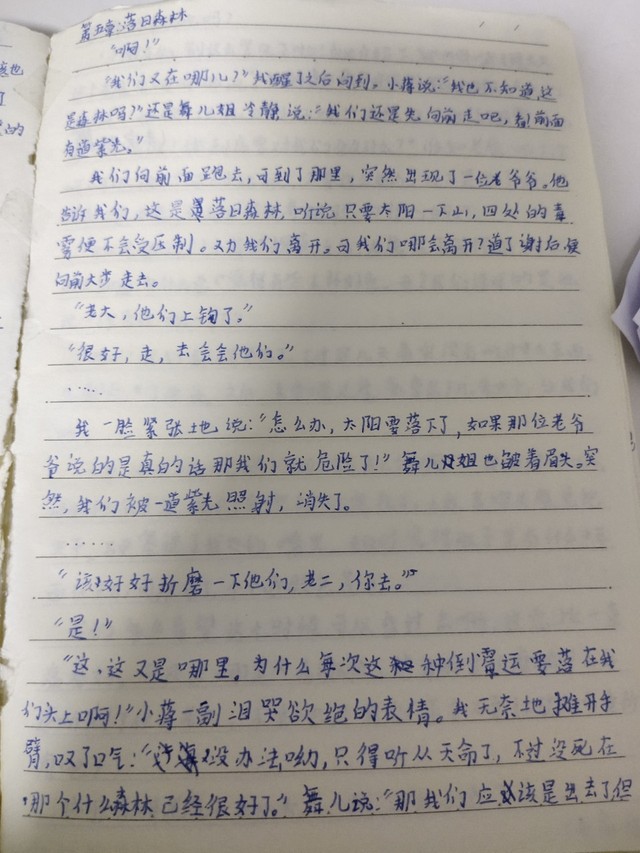 第五章:落日森林
"啊!"
"我们又在哪儿?"我醒了之后问到。小蒋说:"我也不知道,这
是森林吗?"还是舞儿姐冷静说:"我们还是先向前走吧,看!前面
有道紫光。"
我们向前面跑去,可到了那里,突然出现了一位老爷爷。他
告诉我们,这是落日森林,听说只要太阳一下山,四处的毒
雾便不会受压制。又为我们离开。可我们哪会离开?道了谢后,便
向前大步走去。
"老大,他们上钩了。"
"很好,走,去会会他们。"
……
我一脸紧张地说:"怎么办,太阳要落下了,如果那位老爷
爷说的是真的话那我们就危险了!"舞儿姐也皱着眉头。突
然,我们被一道紫光照射,消失了。
……
"该好好折磨一下他们,老二,你去。"
"是!"
"这、这又是哪里。为什么每次这种倒霉运要落在我
们头上啊!"小蒋一副泪哭欲绝的表情。我无奈地摊开手
臂,叹了口气:"没办法呦,只得听从天命了,不过没死在
那个什么森林已经很好了。"舞儿说:"那我们应该是出去了但
也
了
的